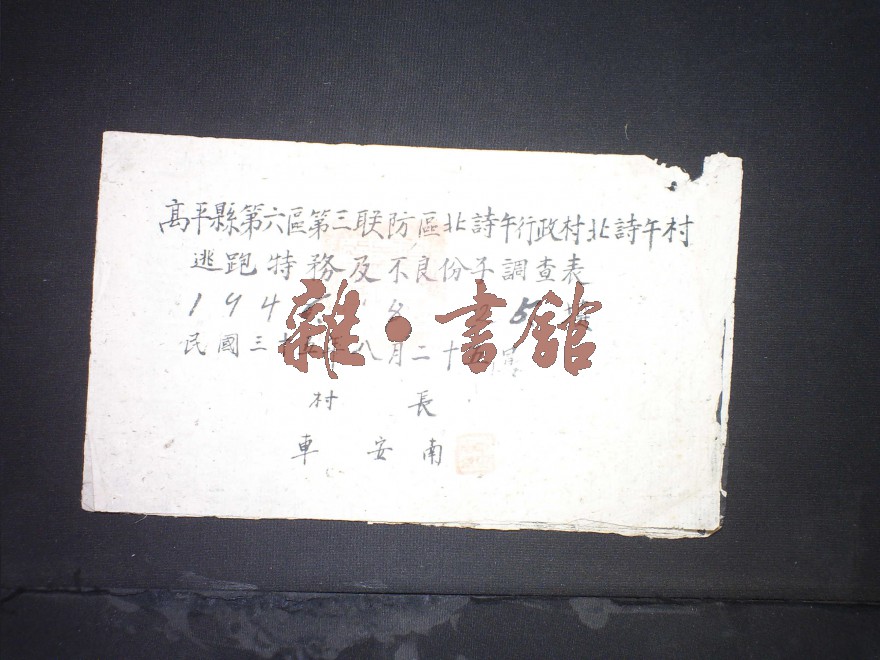 高平縣第六區第三联防區北詩午行政村北詩午村
逃跑特務及不良份子調查表
194 8 5
民國三十五年八月二十
雜·書館
村 長
車 安 南